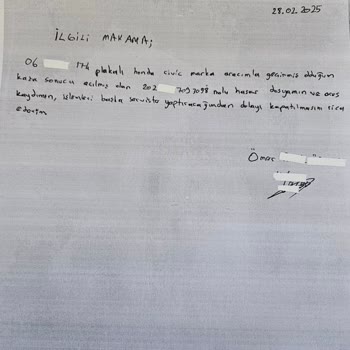 28.02.2025
İLGİLİ MAKAMA;
06 174 plakalı honda civic marka aracımla geçirmiş olduğum
kaza sonucu açılmış olan 202 7093098 nolu hasar dosyamın ve
kaydının, işlemleri başka serviste yaptıracağımdan dolayı kapatılmasını rica
ederim
Ömer